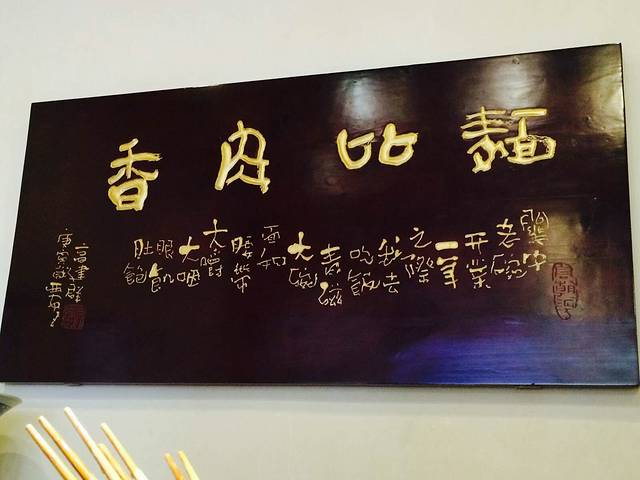 麵比肉香
關中
老碗
开業
一年
之際
我去
吃飯
青磁
大碗
面如
腰带
大嚼
大咽
眼飢
肚飽
高建群